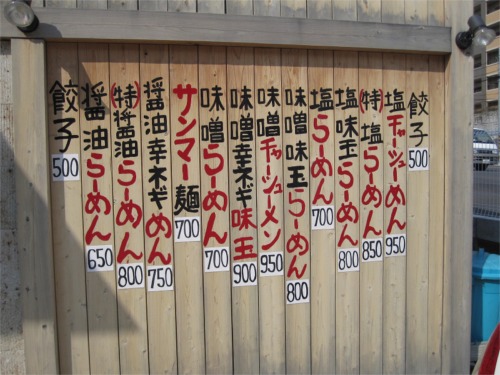 餃子 500
塩チャーシューめん 950
(特)塩らーめん 850
塩味玉らーめん 800
塩らーめん 700
味噌味玉らーめん 800
味噌チャーシューメン 950
味噌幸ネギ味玉 900
味噌らーめん 700
サンマー麺 700
醤油幸ネギめん 750
(特)醤油らーめん 800
醤油らーめん 650
餃子 500